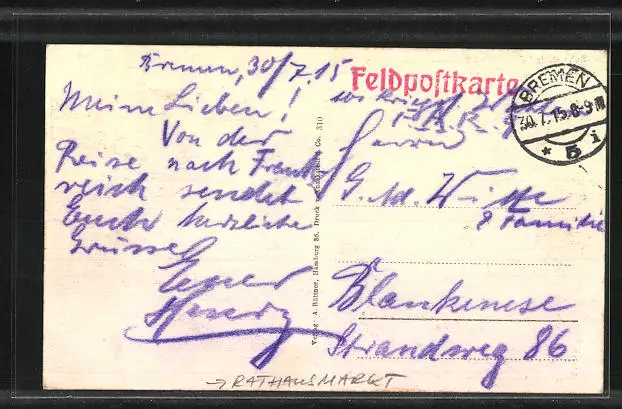 Bremen, 30/7.15
Meine Lieben!
Von der
Reise nach Frank-
reich sendet
Euch herzliche
Grüsse
Euer
Henry
Verlag A. Büttner, Hamburg 36. Druck Co. 310
Feldpostkarte
BREMEN
30.7.15.8-9N
* 5 i
Herrn
G. Ad. Witte
& Familie
Blankenese
Strandweg 86
→ RATHAUSMARKT